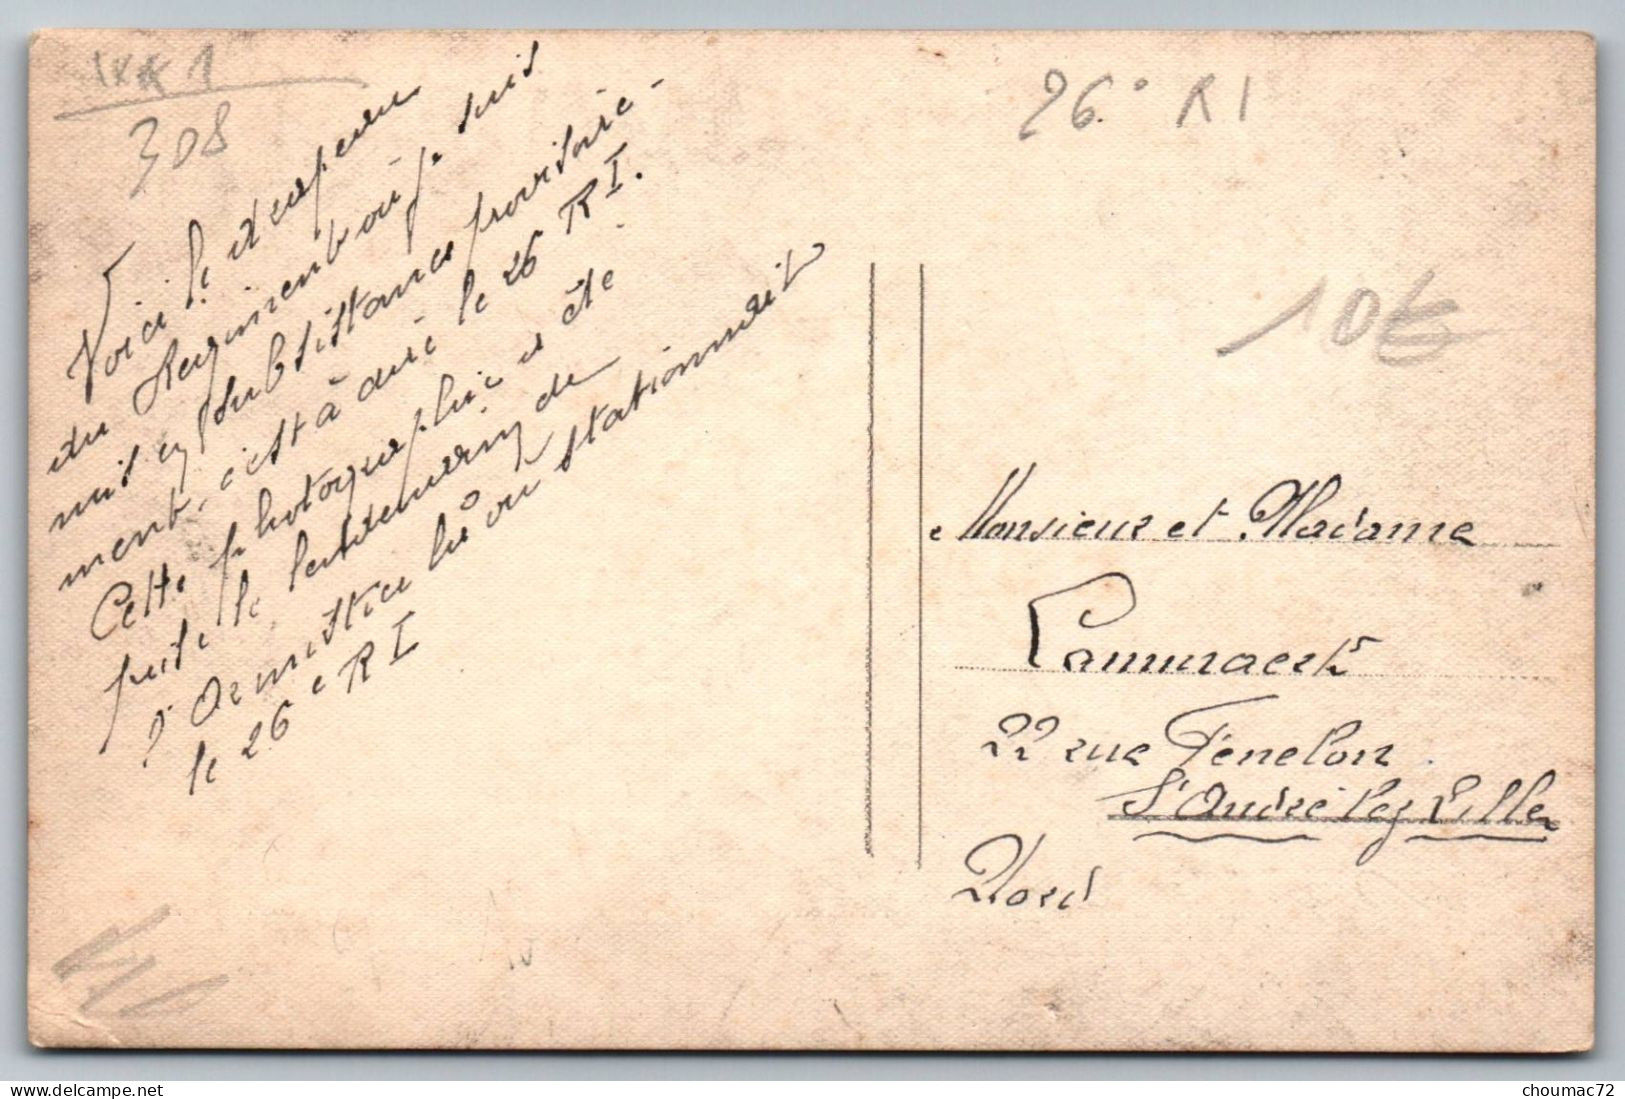 308
26° RI
10€
Voici le drapeau
du Regiment où je suis
mis en subsistances provisoire-
ment, c'est à dire le 26 RI.
Cette photographie a été
faite le lendemain de
l'Armistice là où stationnait
le 26e RI
Monsieur et Madame
Cammaert
22 rue Fénelon
St André lez Lille
Nord
delcampe.net
choumac72